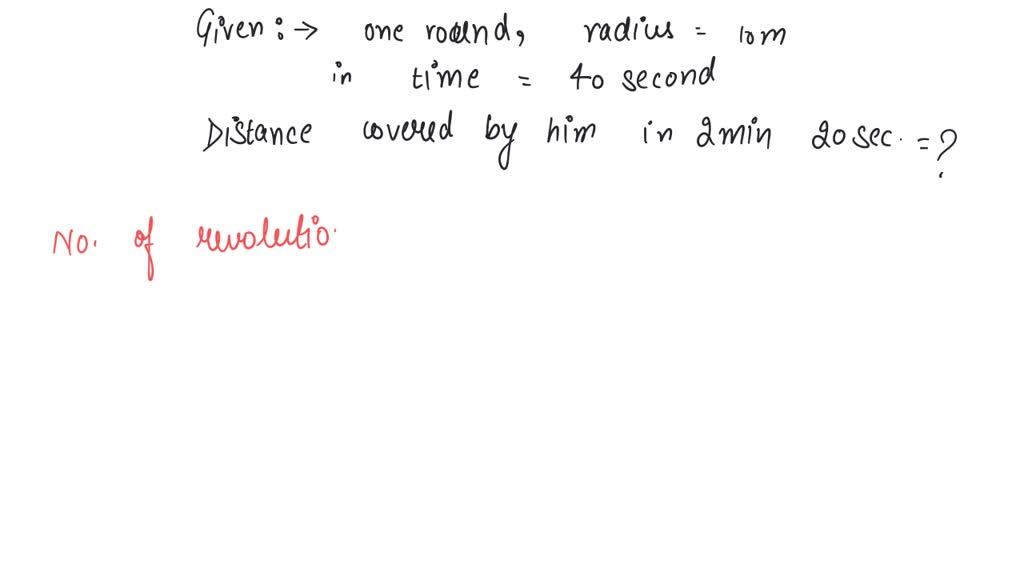 Given:→ one round, radius = 10m
in time = 40 second
Distance covered by him in 2min 20sec. = ?
No. of revolutio.